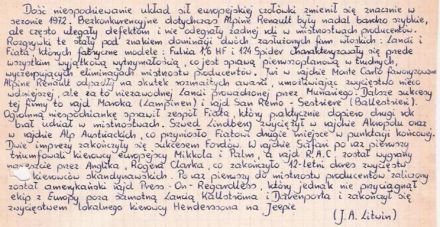 Dość niespodziewanie układ sił europejskiej czołówki zmienił się znacznie w
sezonie 1972. Bezkonkurencyjne dotychczas Alpine Renault były nadal bardzo szybkie,
ale często ulegały defektom i nie odegrały żadnej roli w mistrzostwach producentów.
Rozgrywki te stały pod znakiem dominacji dwóch zasłużonych firm włoskich: Lancii i
Fiata, których fabryczne modele: Fulvia 1.6 HF i 124 Spider charakteryzowały się przede
wszystkim wyjątkową wytrzymałością, co jest sprawą pierwszoplanową w trudnych,
wyczerpujących eliminacjach mistrzostw producentów. Już w rajdzie Monte Carlo faworyzowane
Alpine Renault odpadły na skutek rozmaitych awarii, umożliwiając zwycięstwo nieco
wolniejszej, ale za to niezawodnej Lancii prowadzonej przez Munariego. Dalsze sukcesy
tej firmy to rajd Maroka (Lampinen) i rajd San Remo - Sestriere (Ballestrieri).
Ogromną niespodziankę sprawił zespół Fiata, który praktycznie dopiero drugi rok
brał udział w mistrzostwach. Szwed Lindberg zwyciężył w rajdzie Akropolu oraz
w rajdzie Alp Austriackich, co przyniosło Fiatowi drugie miejsce w punktacji końcowej.
Dwie imprezy zakończyły się sukcesem Fordów. W rajdzie Safari po raz pierwszy
triumfowali kierowcy europejscy Mikkola i Palm, a rajd R.A.C. został wygrany
nareszcie przez Anglika, Rogera Clarka, co zakończyło 12-letni okres zwycięstw
kierowców skandynawskich. Po raz pierwszy do mistrzostw producentów zaliczony
został amerykański rajd Press-On-Regardless, który jednak nie przyciągnął
ekip z Europy poza samotną Lancią Källströma i Davenporta i zakończył się
zwycięstwem lokalnego kierowcy Hendersona na Jeepie
(J. A. Litwin)